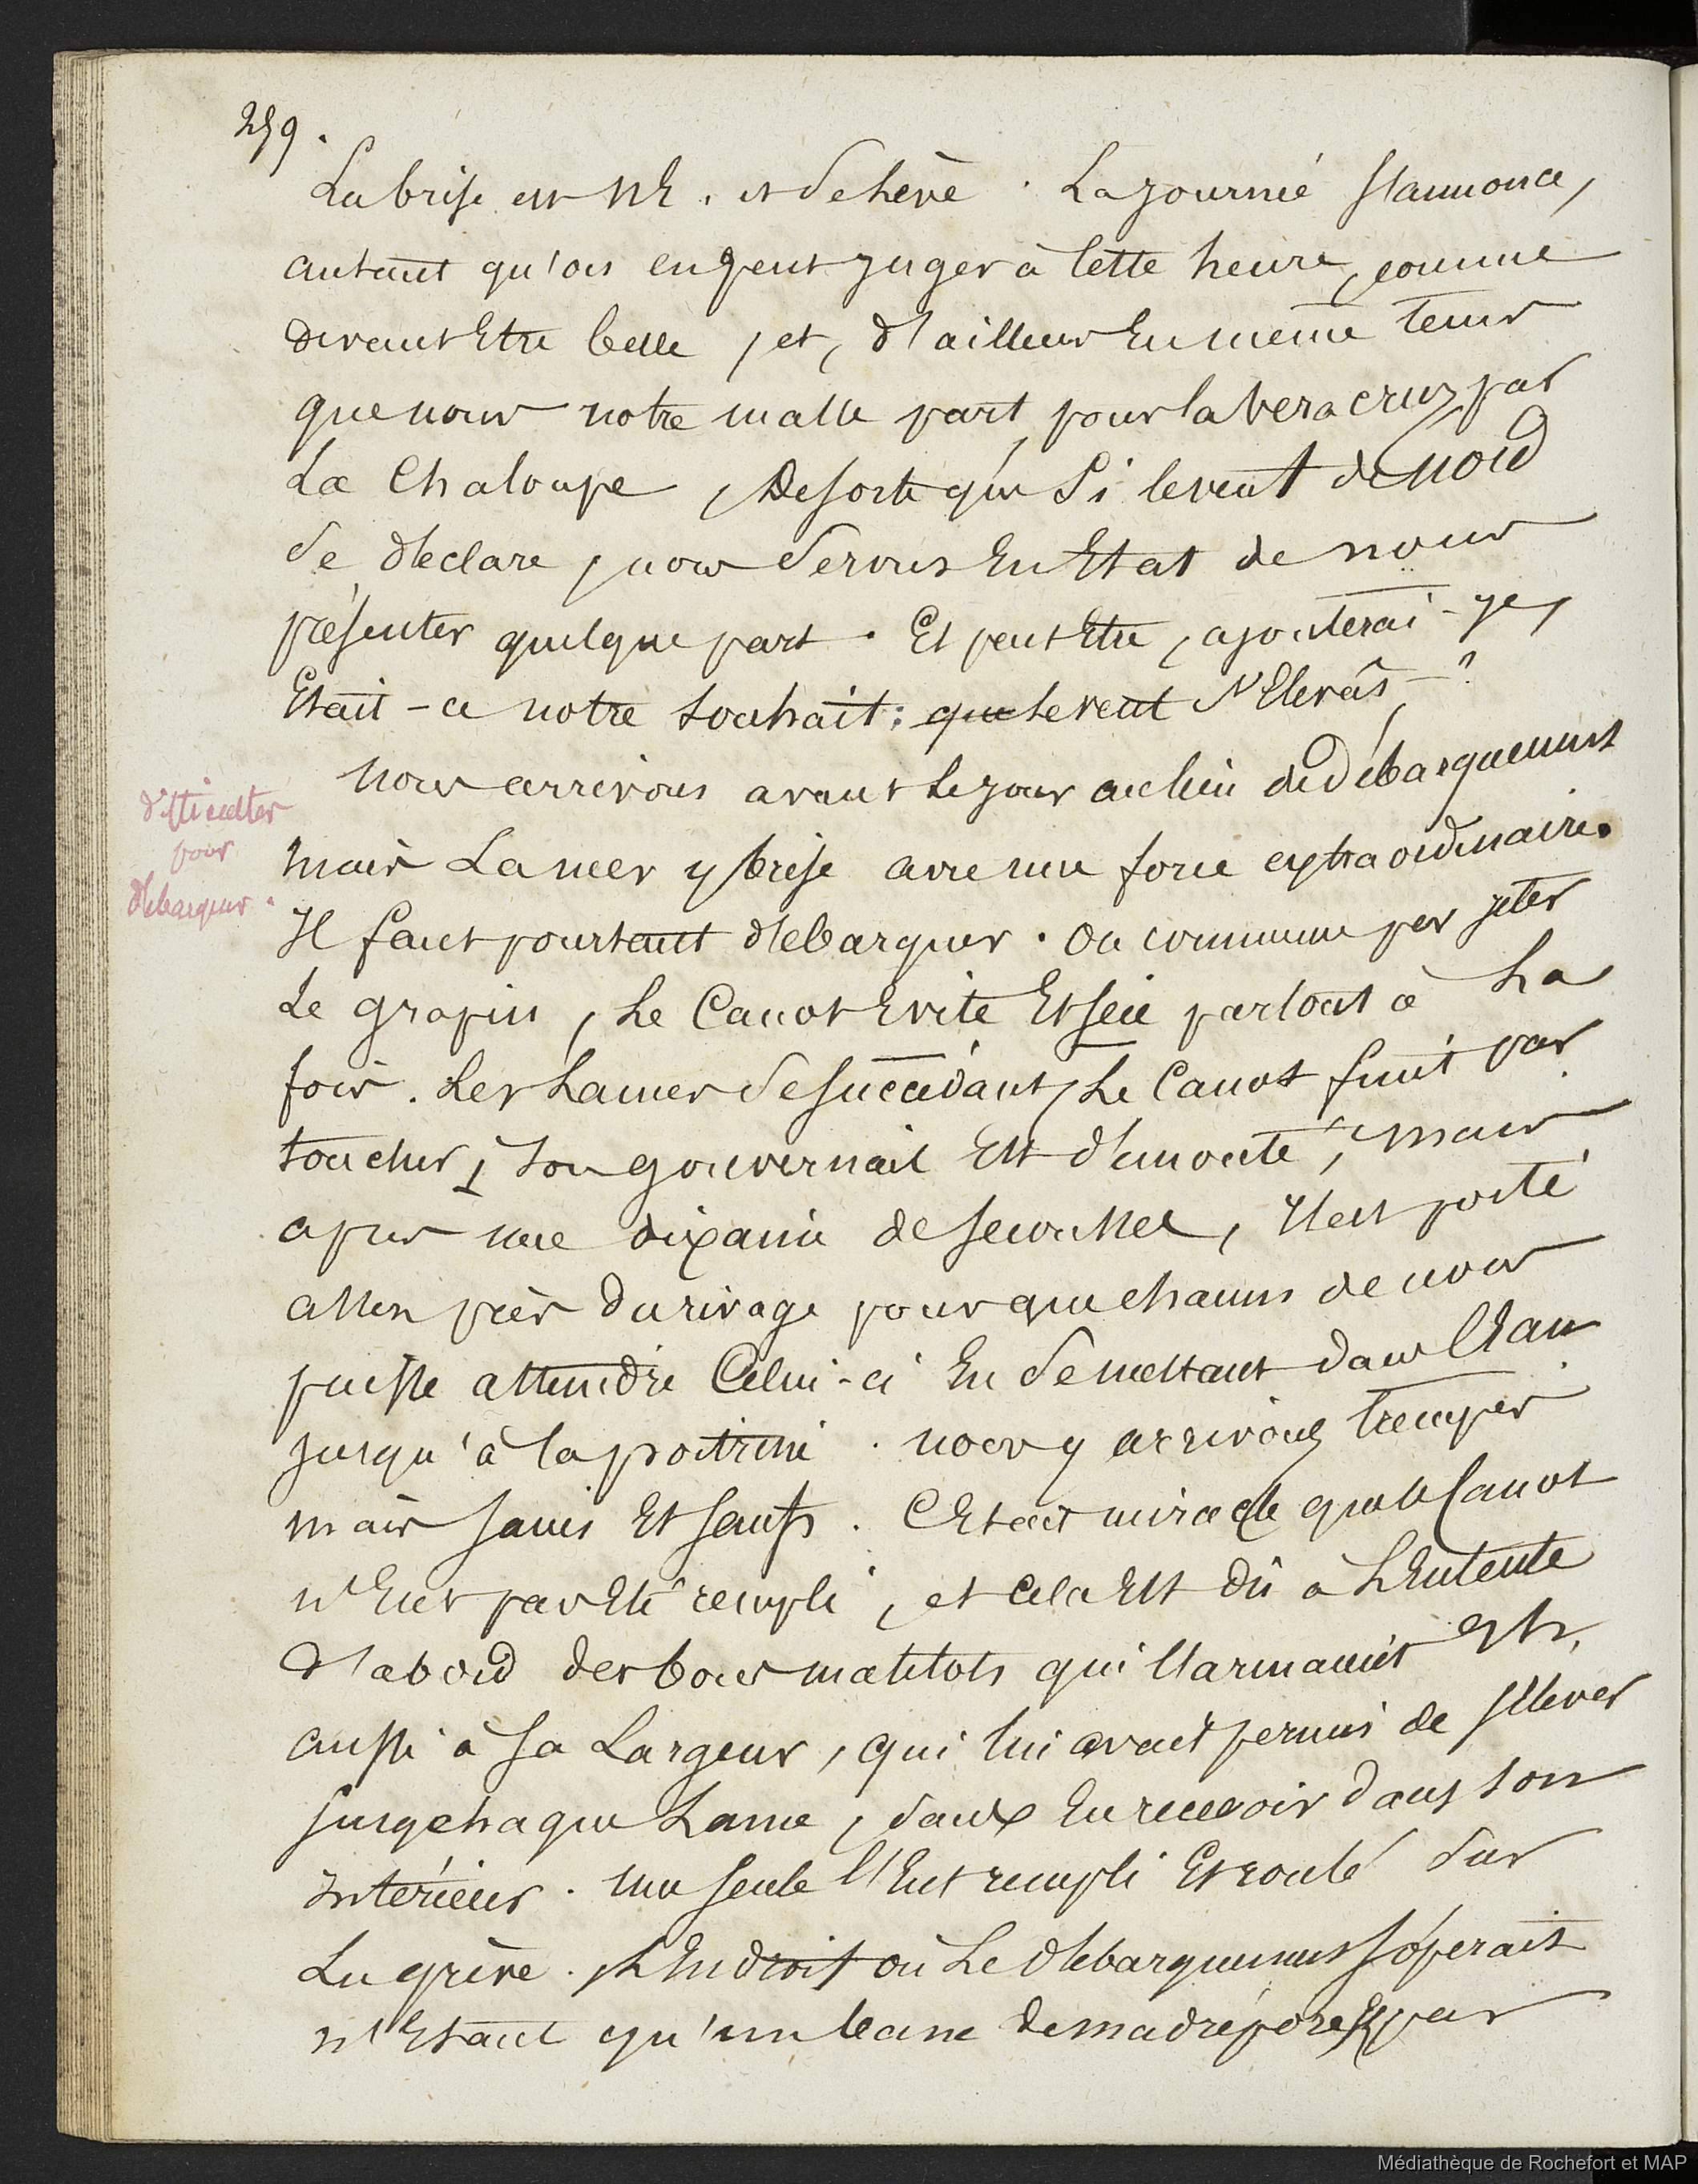 259.
La brise est NE. et se lève. La journée s'annonce,
autant qu'on en peut juger à cette heure, comme
devant Etre belle, et, d'ailleurs En même tems
que nous notre malle part pour la vera cruz par
La Chaloupe, De sorte que Si le vent de Nord
Se déclare, nous Serons En Etat de nous
présenter quelque part. Et peut Etre, ajouterai-je,
Etait-ce notre souhait: que le vent s'Elevâs-?
Nous arrivons avant le jour au lieu de débarquement
difficultes
pour
débarquer.
mais La mer y brise avec une force extraordinaire.
Il faut pourtant débarquer. On commence par jeter
Le grapin, Le Canot Evite Et scie partout à La
fois. Les Lames Se succédant, Le Canot finit par
toucher, Son gouvernail Est démonté, mais
après une dixaine de secousses, il est porté
assez près du rivage pour que chacun de nous
puisse atteindre Celui-ci En Se mettant dans l'Eau
jusqu'à la poitrine. nous y arrivons trempés
mais sains Et saufs. C'Etait miracle que le Canot
n'Eut pas Eté rempli, et cela Est dû à L'Entente
d'abord des bons matelots qui l'armaient Et,
aussi à sa Largeur, qui lui avait permis de s'élever
sur chaque Lame, sans En recevoir dans son
intérieur. Une seule l'Eut rempli Et roulé Sur
La grève. L'Endroit où Le débarquement s'opérait
n'Etant qu'un banc de madrépores, par
Médiathèque de Rochefort et MAP